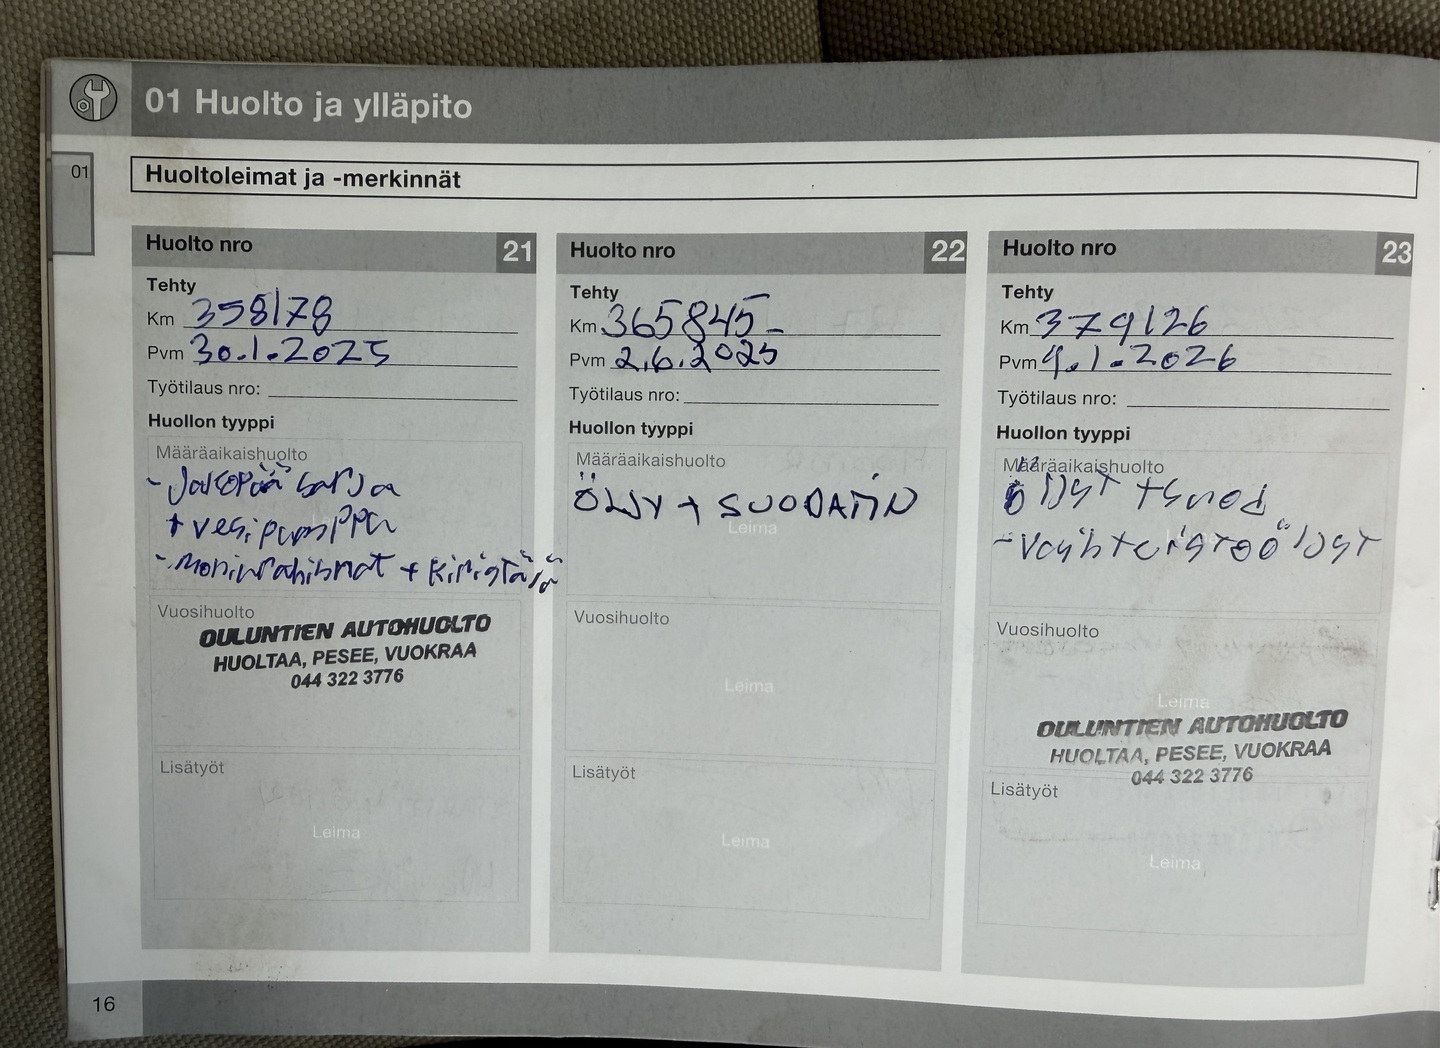 01 Huolto ja ylläpito
01
Huoltoleimat ja -merkinnät
Huolto nro 21
Tehty
Km 358178
Pvm 30.1.2025
Työtilaus nro:
Huollon tyyppi
Määräaikaishuolto
- Jakopää sarja
+ vesipumppu
- moniurahihnat + kiristäjä
Vuosihuolto
OULUNTIEN AUTOHUOLTO
HUOLTAA, PESEE, VUOKRAA
044 322 3776
Lisätyöt
Leima
Huolto nro 22
Tehty
Km 365845-
Pvm 2.6.2025
Työtilaus nro:
Huollon tyyppi
Määräaikaishuolto
ÖLJY + SUODATIN
Leima
Vuosihuolto
Leima
Lisätyöt
Leima
Huolto nro 23
Tehty
Km 379126
Pvm 9.1.2026
Työtilaus nro:
Huollon tyyppi
Määräaikaishuolto
Öljyt + suod
- Vaihteistoöljyt
Vuosihuolto
Leima
OULUNTIEN AUTOHUOLTO
HUOLTAA, PESEE, VUOKRAA
044 322 3776
Lisätyöt
Leima
16